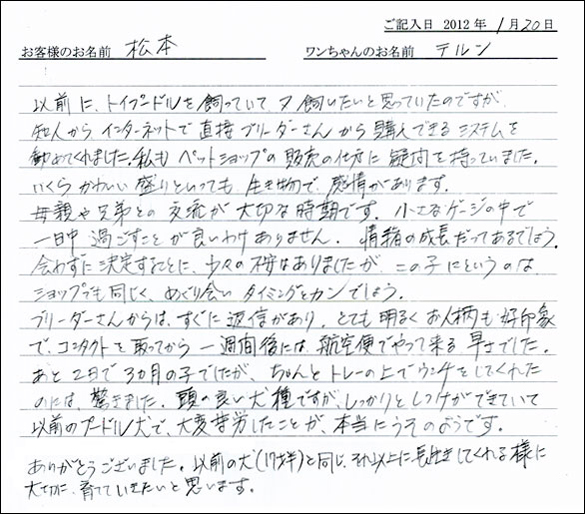 ご記入日 2012年 1月20日
お客様のお名前 松本 ワンちゃんのお名前 テルン
以前に、トイプードルを飼っていて又飼いたいと思っていたのですが、
知人からインターネットで直接ブリーダーさんから購入できるシステムを
勧めてくれました。私もペットショップの販売の仕方に疑問を持っていました。
いくらかわいい盛りといっても生き物で、感情があります。
母親や兄弟との交流が大切な時期です。小さなゲージの中で
一日中過ごすことが良いわけありません。情緒の成長だってあるでしょう。
会わずに決定することに、少々の不安はありましたが、この子にというのは、
ショップでも同じく、めぐり会いタイミングとカンでしょう。
ブリーダーさんからは、すぐに返信があり、とても明るくお人柄も好印象
で、コンタクトを取ってから一週間後には、航空便でやって来る早さでした。
あと2日で3カ月の子でしたが、ちゃんとトレーの上でウンチをしてくれた
のには、驚きました。頭の良い犬種ですが、しっかりとしつけができていて
以前のプードル犬で、大変苦労したことが、本当にうそのようです。
ありがとうございました。以前の犬(17才半)と同じ、それ以上に長生きしてくれる様に
大切に、育てていきたいと思います。